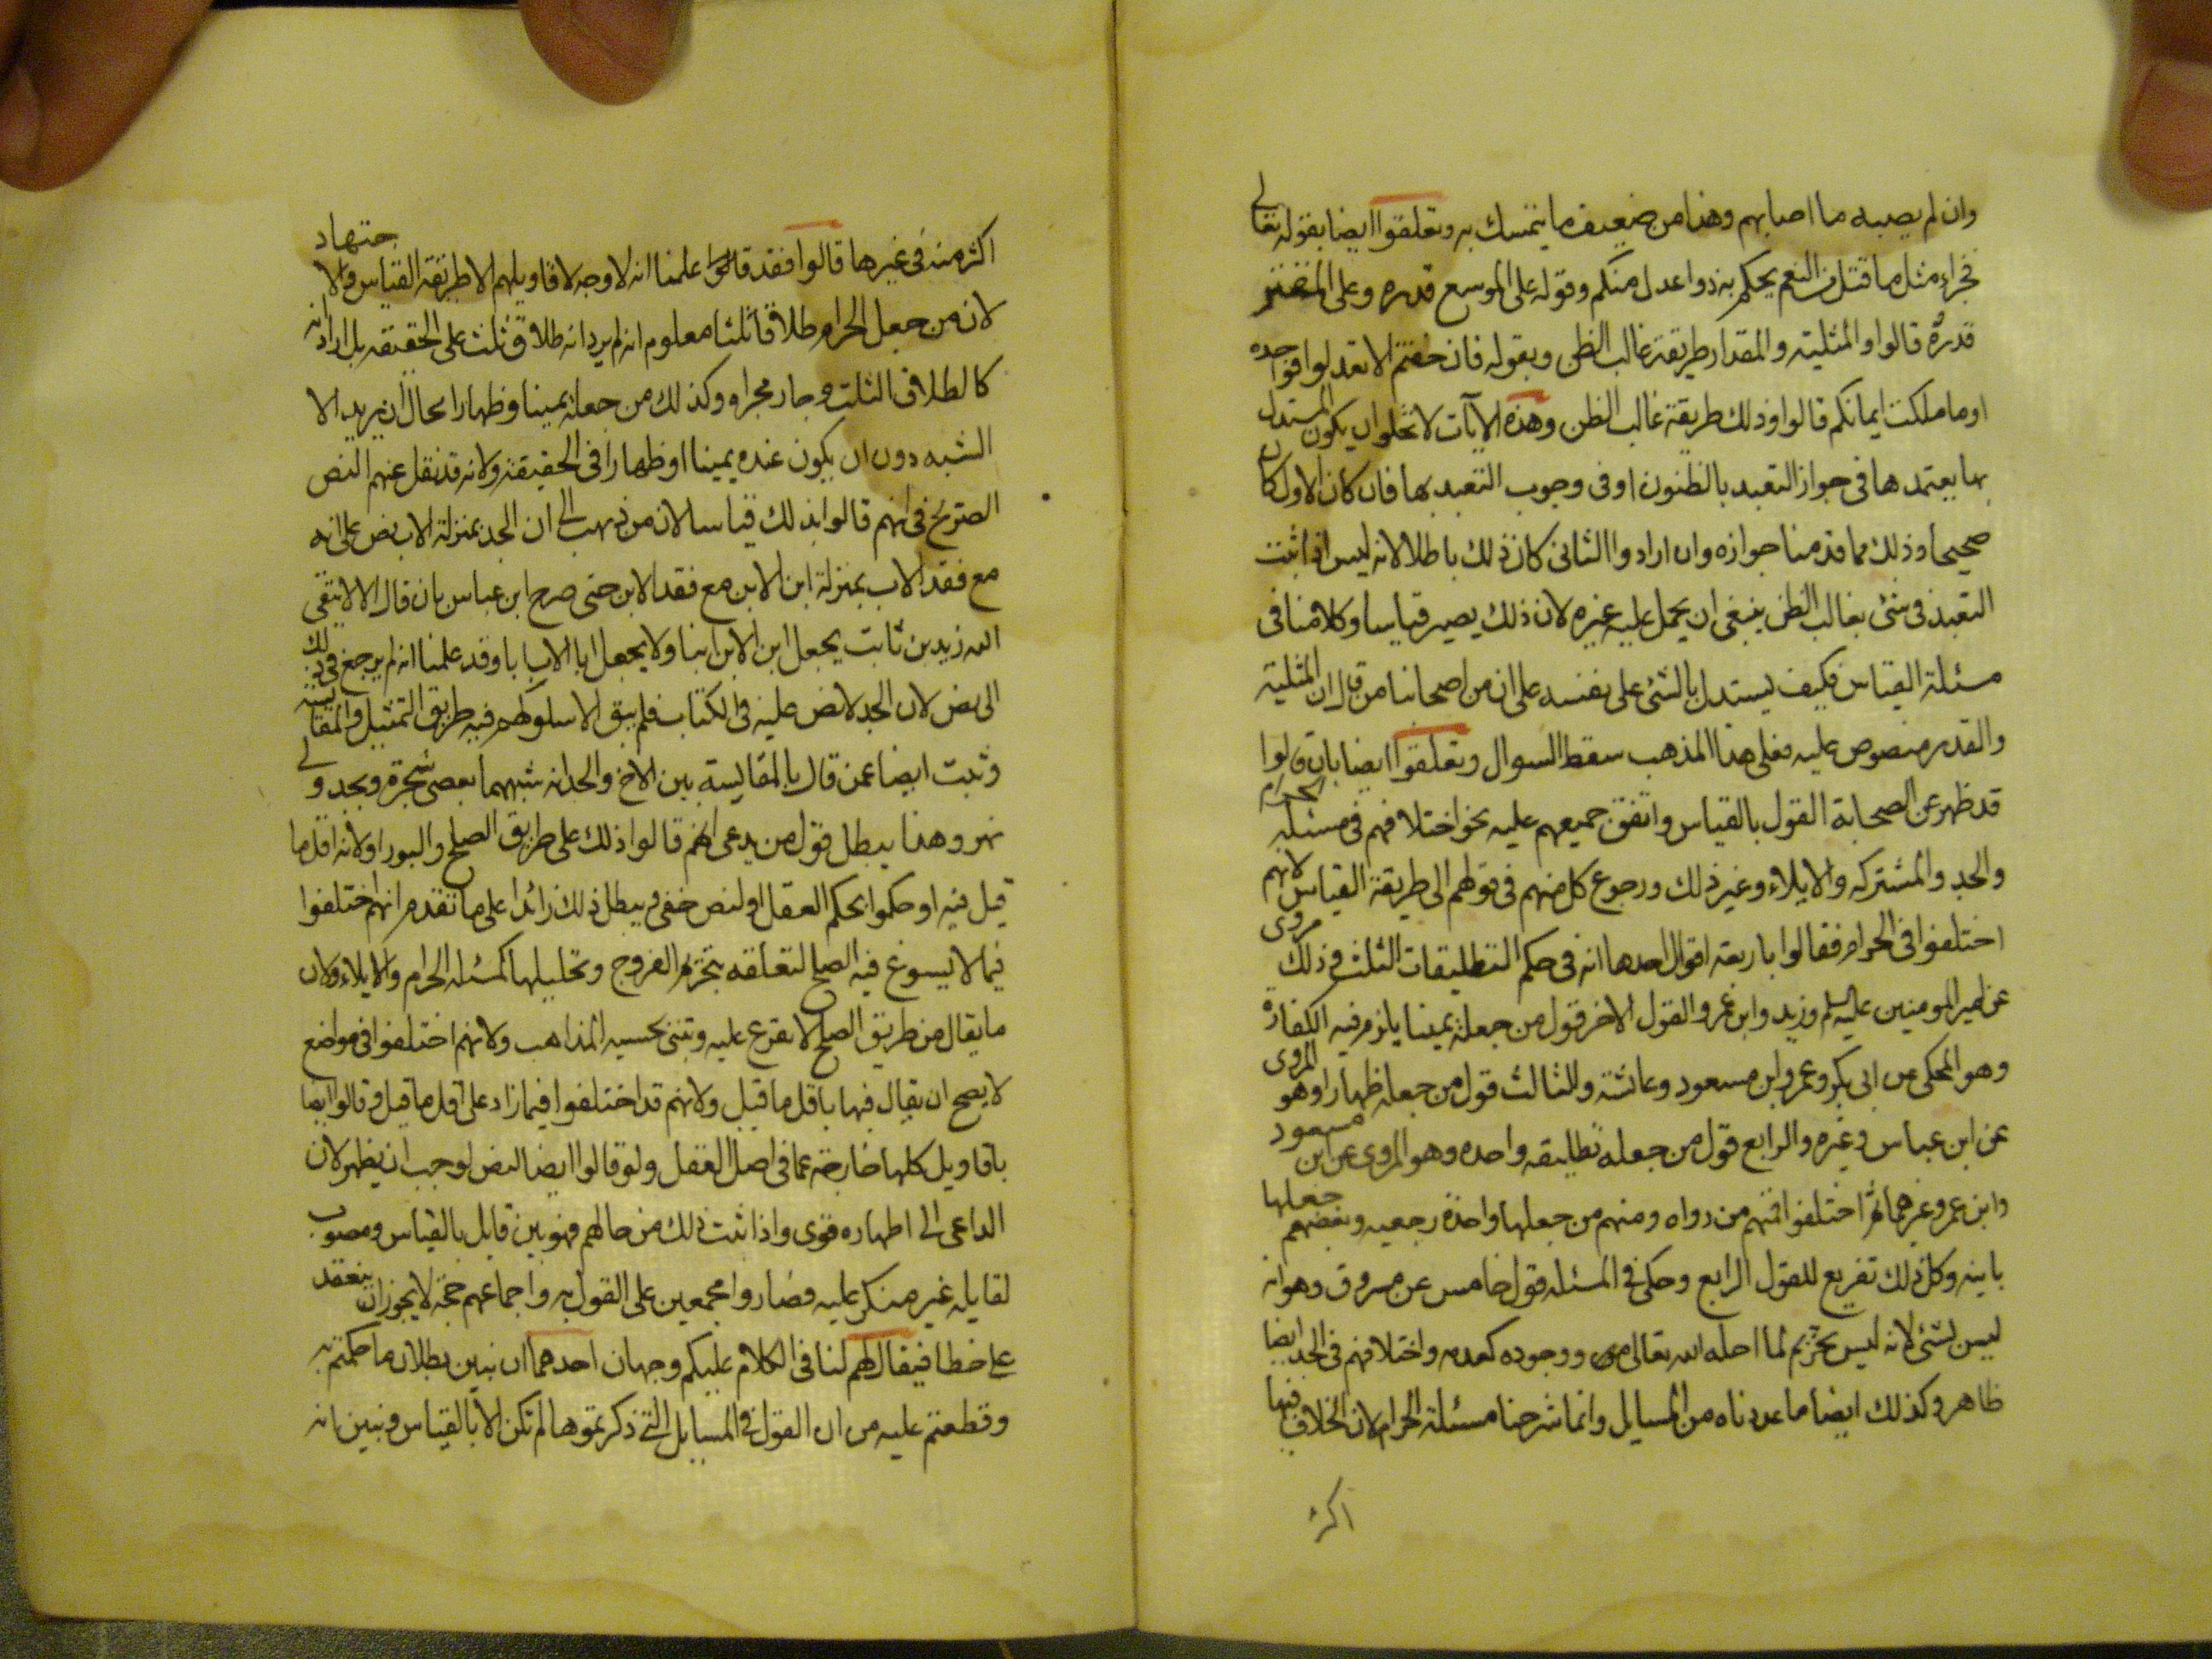 وان لم يصبه ما اصابهم وهذا من ضعيف ما يتمسك به وتعلقوا ايضا بقوله تعالى
فجزاء مثل ما قتل من النعم يحكم به ذوا عدل منكم وقوله على الموسع قدره وعلى المقتر
قدره قالوا والمثلية والمقدار طريقة غالب الظن وبقوله فان خفتم الا تعدلوا فواحده
او ما ملكت ايمانكم قالوا وذلك طريقة غالب الظن وهذه الآيات لا تخلو ان يكون المستدل
بها يعتمدها فى جواز التعبد بالظنون او فى وجوب التعبد بها فان كان الاول كان
صحيحا وذلك مما قدمنا جوازه وان ارادوا الثانى كان ذلك باطلا لانه ليس اذا ثبت
التعبد فى شئ بغالب الظن ينبغى ان يحمل عليه غيره لان ذلك يصير قياسا وكلامنا فى
مسئلة القياس فكيف يستدل بالشئ على نفسه على ان من اصحابنا من قال ان المثلية
والقدر منصوص عليه فعلى هذا المذهب سقط السوال وتعلقوا ايضا بان قالوا
قد ظهر عن الصحابة القول بالقياس واتفق جميعهم عليه نحو اختلافهم فى مسئلة الحرام
والجد والمشتركه والايلاء وغير ذلك ورجوع كل منهم فى قولهم الى طريقة القياس لانهم
اختلفوا فى الحرام فقالوا باربعة اقوال احدها انه فى حكم التطليقات الثلث وذلك مروى
عن امير المومنين عليه السلم وزيد وابن عمر والقول الاخر قول من جعله يمينا يلزم فيه الكفارة
وهو المحكى عن ابى بكر وعمر وابن مسعود وعائشة والثالث قول من جعله ظهارا وهو المروى
عن ابن عباس وغيره والرابع قول من جعله تطليقه واحده وهو المروى عن ابن مسعود
وابن عمر وغيرهما ثم اختلفوا فمنهم من رواه ومنهم من جعلها واحدة رجعيه وبعضهم جعلها
باينه وكل ذلك تفريع للقول الرابع وحكى فى المسئله قول خامس عن مسروق وهو انه
ليس بشئ لانه ليس تحريم لما احله الله تعالى ووجوده كعدمه واختلافهم فى الجد ايضا
ظاهر وكذلك ايضا ما عددناه من المسايل وانما شرحنا مسئلة الحرام لان الخلاف فيها
اكثر
اكثر منه فى غيرها قالوا فقد علمنا انه لا وجه لاقاويلهم الا طريقة القياس والاجتهاد
لان من جعل الحرام طلاقا ثلثا معلوم انه لم يرد انه طلاق ثلث على الحقيقه بل اراد انه
كالطلاق الثلث وجار مجراه وكذلك من جعله يمينا وظهارا محال ان يريد الا
الشبه دون ان يكون عنده يمينا او ظهارا فى الحقيقة ولانه قد نقل عنهم النص
الصريح فى انهم قالوا بذلك قياسا لان من ذهب الى ان الجد بمنزلة الاب نص على انه
مع فقد الاب بمنزلة ابن الابن مع فقد الابن حتى صرح ابن عباس بان قال الا لا يتقى
الله زيد بن ثابت يجعل ابن الابن ابنا ولا يجعل ابا الاب ابا وقد علمنا انه لم يرجع فى ذلك
الى نص لان الجد لا نص عليه فى الكتاب فلم يبق الا سلوكهم فيه طريق التمثيل والمقايسة
وثبت ايضا عمن قال بالمقايسة بين الاخ والجد انه شبههما بغصنى شجرة وبجدولى
نهر وهذا يبطل قول من يدعى انهم قالوا ذلك على طريق الصلح والبور او لانه اقل ما
قيل فيه او حكموا بحكم العقل او لنص خفى ويبطل ذلك زائدا على ما تقدم انهم اختلفوا
فيما لا يسوغ فيه الصلح لتعلقه بتحريم الفروج وتحليلها كمسئله الحرام والايلاء ولان
ما يقال من طريق الصلح لا يفرع عليه وتبنى بحسبه المذاهب ولانهم اختلفوا فى مواضع
لا يصح ان يقال فيها باقل ما قيل ولانهم قد اختلفوا فيما زاد على اقل ما قيل وقالوا ايضا
باقاويل كلها خارجة عما فى اصل العقل ولو قالوا ايضا لنص لوجب ان يظهر لان
الداعى الى اظهاره قوى واذا ثبت ذلك من حالهم فهو بين قايل بالقياس ومصوب
لقايله غير منكر عليه فصاروا مجمعين على القول به واجماعهم حجة لا يجوز ان ينعقد
على خطا فيقال لهم لنا فى الكلام عليكم وجهان احدهما ان نبين بطلان ما حكمتم به
وقطعتم عليه من ان القول فى المسايل التى ذكرتموها لم تكن الا بالقياس ونبين انه